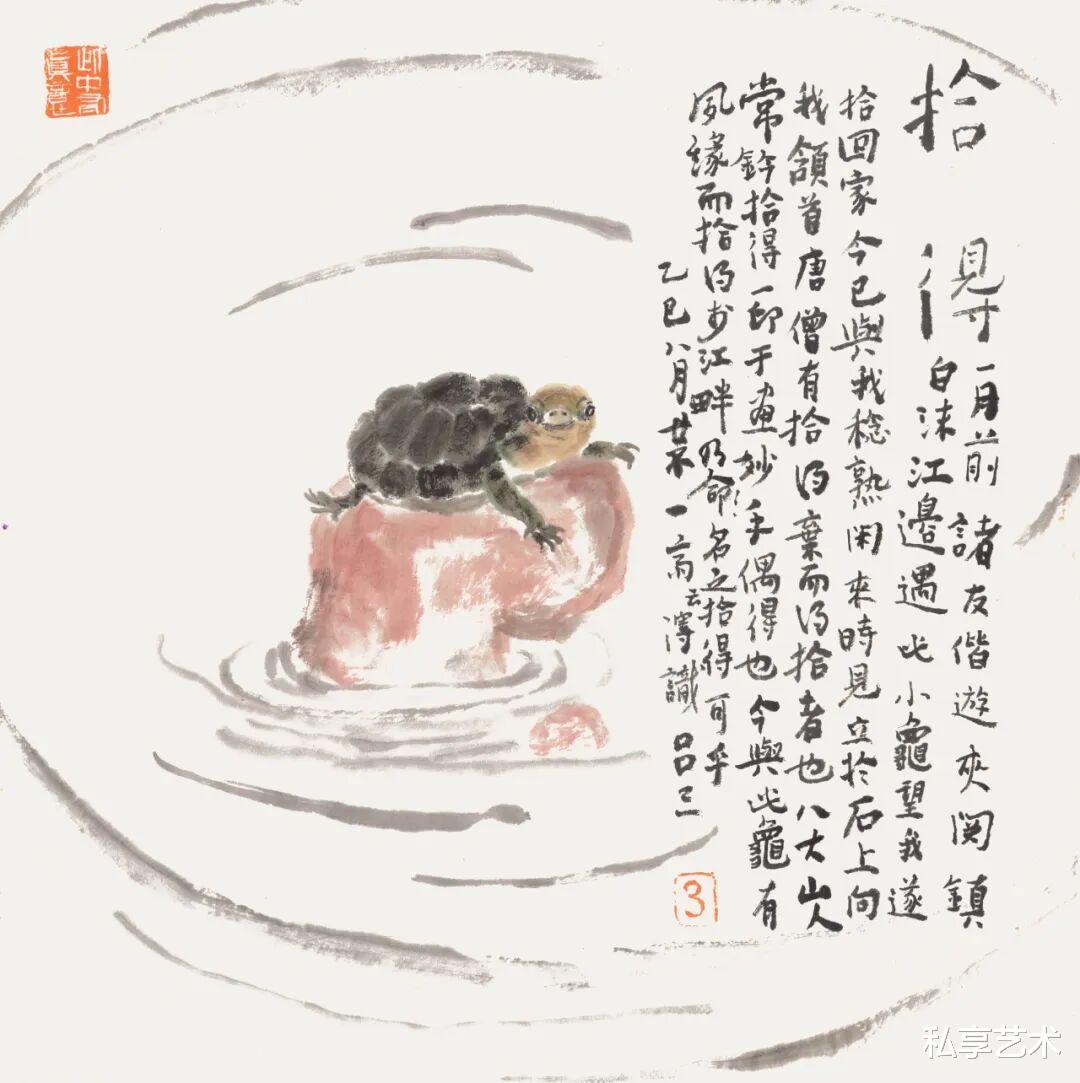 拾得
一月前諸友偕遊夾関鎮
白沫江邊遇此小龜望我遂
拾回家今已與我稔熟閑來時見立於石上向
我頷首唐僧有拾得棄而得拾者也八大山人
常鈐拾得一印于畫妙手偶得也今與此龜有
夙緣而拾得於江畔乃命名之拾得可乎
乙巳八月廿不一斋云識 吕三
3
此中有
真意
私享艺术